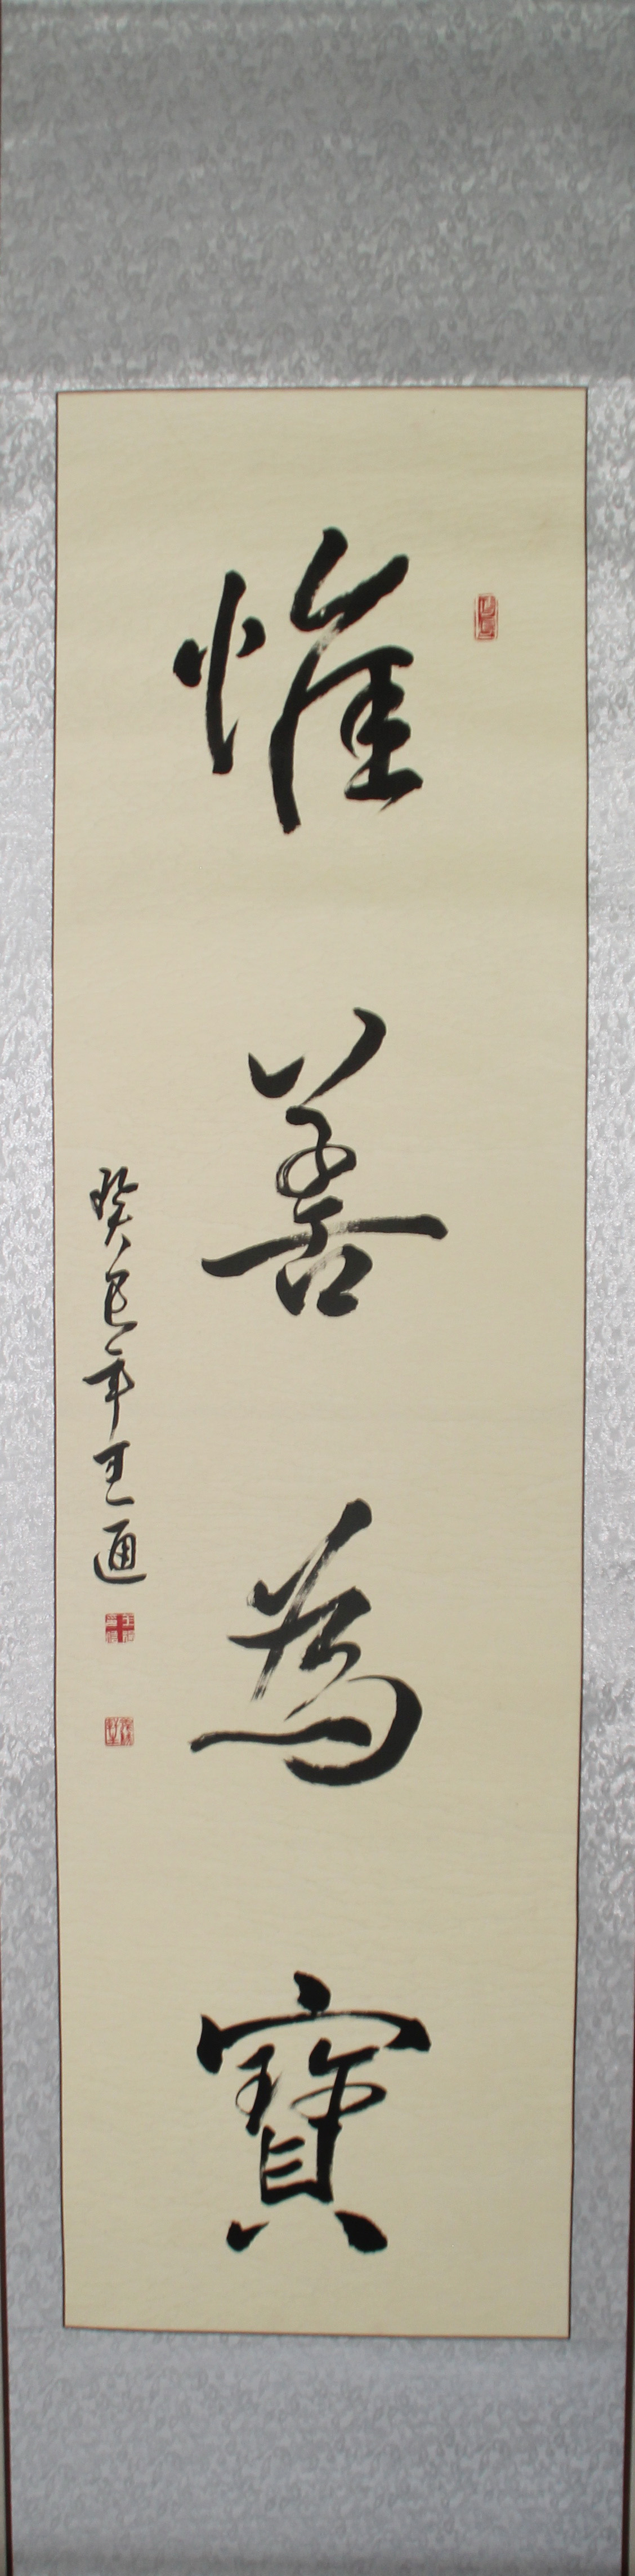 惟善為寶
癸巳年王通